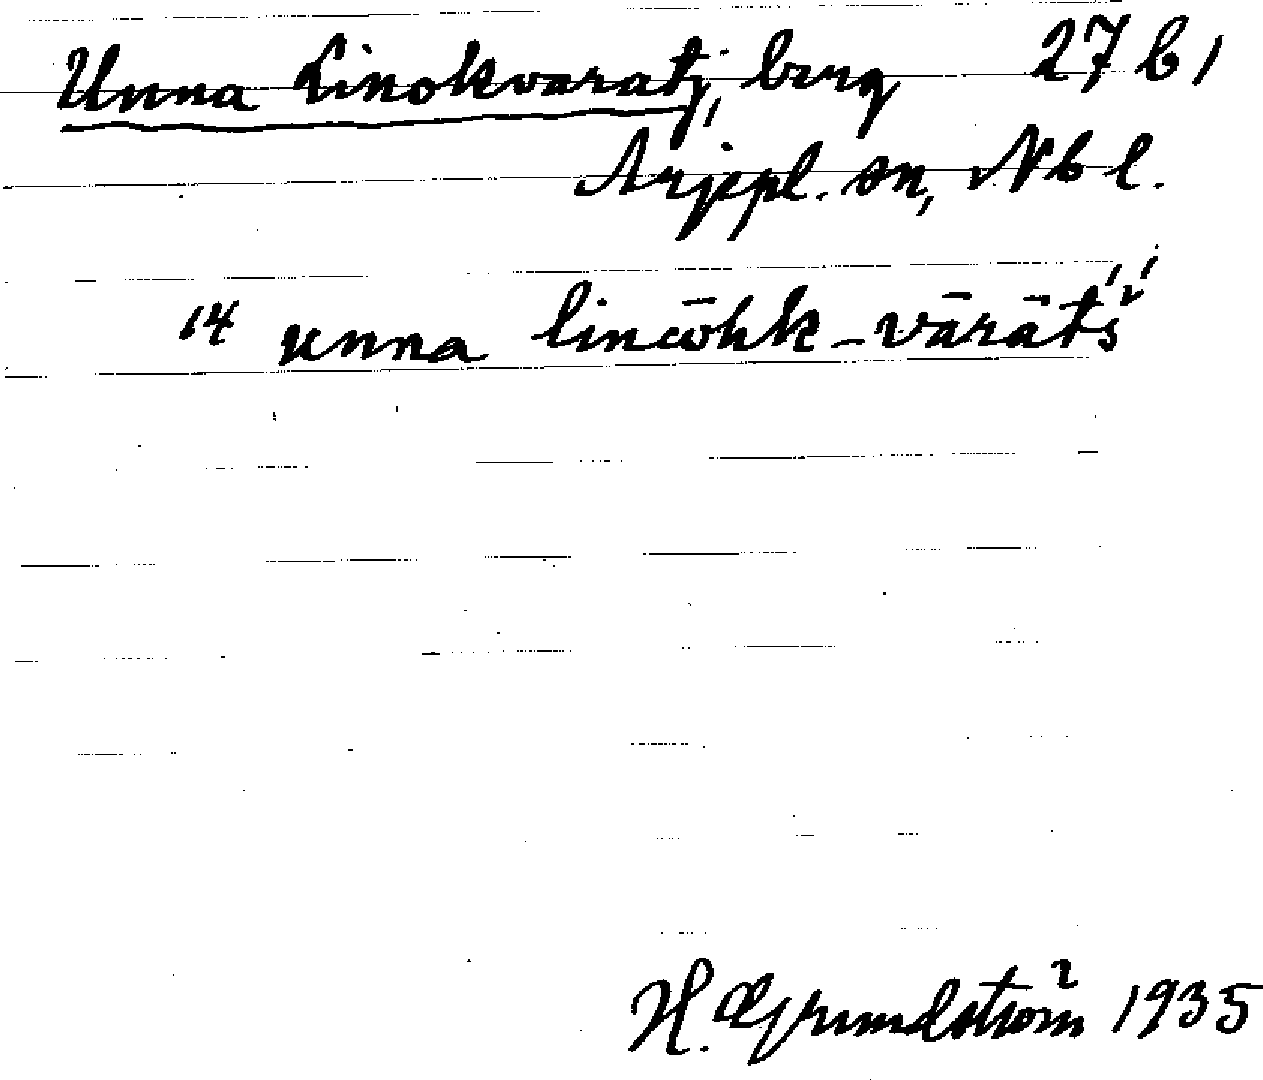 Unna Linokvaratj, berg 27 b,
Arjepl. sn, Nbl.
14 unna linōhk-vārāts̀́
H. Grundström 1935